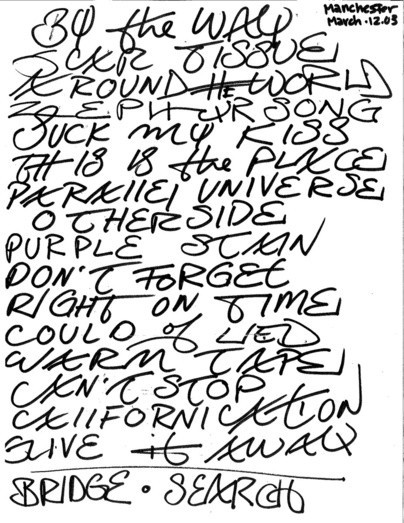 Manchester
March .12.03
BY the WAY
SCAR TISSUE
AROUND tHE WORLD
ZEPHYR SONG
SUCK MY KISS
THIS IS the PLACE
PARAllEl UNIVERSE
OTHERSIDE
PURPLE STAIN
DON'T FORGET
RIGHT ON TIME
COULD of LIED
WARM TAPE
CAN'T STOP
CAlIFORNICATION
GIVE it AWAY
BRIDGE • SEARCH